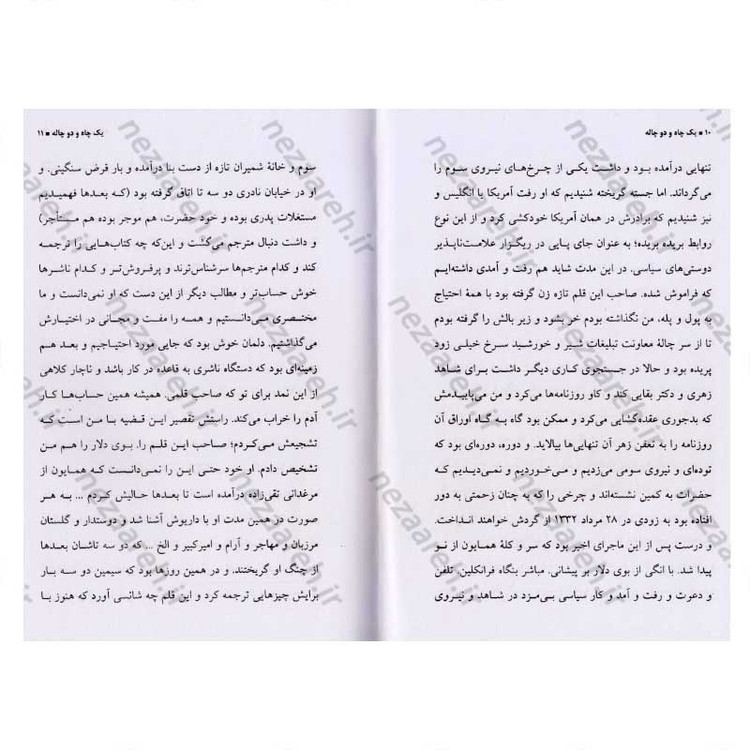 ۱۰ ■ یک چاه و دو چاله
تنهایی درآمده بود و داشت یکی از چرخ‌های نیروی سوم را
می‌گرداند. اما جسته گریخته شنیدیم که او رفت آمریکا یا انگلیس و
نیز شنیدیم که برادرش در همان آمریکا خودکشی کرد و از این نوع
روابط بریده بریده؛ به عنوان جای پایی در ریگزار علامت‌ناپذیر
دوستی‌های سیاسی. در این مدت شاید هم رفت و آمدی داشته‌ایم
که فراموش شده. صاحب این قلم تازه زن گرفته بود با همهٔ احتیاج
به پول و پله، من نگذاشته بودم خر بشود و زیر بالش را گرفته بودم
تا از سر چالهٔ معاونت تبلیغات شیر و خورشید سرخ خیلی زود
پریده بود و حالا در جستجوی کاری دیگر داشت برای شاهد
زهری و دکتر بقایی کند و کاو روزنامه‌ها می‌کرد و من می‌پاییدمش
که بدجوری عقده‌گشایی می‌کرد و ممکن بود گاه به گاه اوراق آن
روزنامه را به تعفن زهر آن تنهایی‌ها بیالاید. و دوره، دوره‌ای بود که
توده‌ای و نیروی سومی می‌زدیم و می‌خوردیم و نمی‌دیدیم که
حضرات به کمین نشسته‌اند و چرخی را که به چنان زحمتی به دور
افتاده بود به زودی در ۲۸ مرداد ۱۳۳۲ از گردش خواهند انداخت.
و درست پس از این ماجرای اخیر بود که سر و کلهٔ همایون از نو
پیدا شد. با انگی از بوی دلار بر پیشانی. مباشر بنگاه فرانکلین. تلفن
و دعوت و رفت و آمد و کار سیاسی بی‌مزد در شاهد و نیروی
یک چاه و دو چاله ■ ۱۱
سوم و خانهٔ شمیران تازه از دست بنا درآمده و بار قرض سنگینی. و
او در خیابان نادری دو سه تا اتاق گرفته بود (که بعدها فهمیدیم
مستغلات پدری بوده و خود حضرت، هم موجر بوده هم مستأجر)
و داشت دنبال مترجم می‌گشت و این‌که چه کتاب‌هایی را ترجمه
کند و کدام مترجم‌ها سرشناس‌ترند و پرفروش‌تر و کدام ناشرها
خوش حساب‌تر و مطالب دیگر از این دست که او نمی‌دانست و ما
مختصری می‌دانستیم و همه را مفت و مجانی در اختیارش
می‌گذاشتیم. دلمان خوش بود که جایی مورد احتیاجیم و بعد هم
زمینه‌ای بود که دستگاه ناشری به قاعده در کار باشد و ناچار کلاهی
از این نمد برای تو که صاحب قلمی. همیشه همین حساب‌ها کار
آدم را خراب می‌کند. راستش تقصیر این قضیه با من است که
تشجیعش می‌کردم؛ صاحب این قلم را. بوی دلار را هم من
تشخیص دادم. او خود حتی این را نمی‌دانست که همایون از
مرغدانی تقی‌زاده درآمده است تا بعدها حالیش کردم ... به هر
صورت در همین مدت او با داریوش آشنا شد و دوستدار و گلستان
مرزبان و مهاجر و آرام و امیرکبیر و الخ ... که دو سه تاشان بعدها
از چنگ او گریختند. و در همین روزها بود که سیمین دو سه بار
برایش چیزهایی ترجمه کرد و این قلم چه شانسی آورد که هنوز با
nezaareh.ir
nezaareh.ir
nezaareh.ir
nezaareh.ir
nezaareh.ir
nezaareh.ir